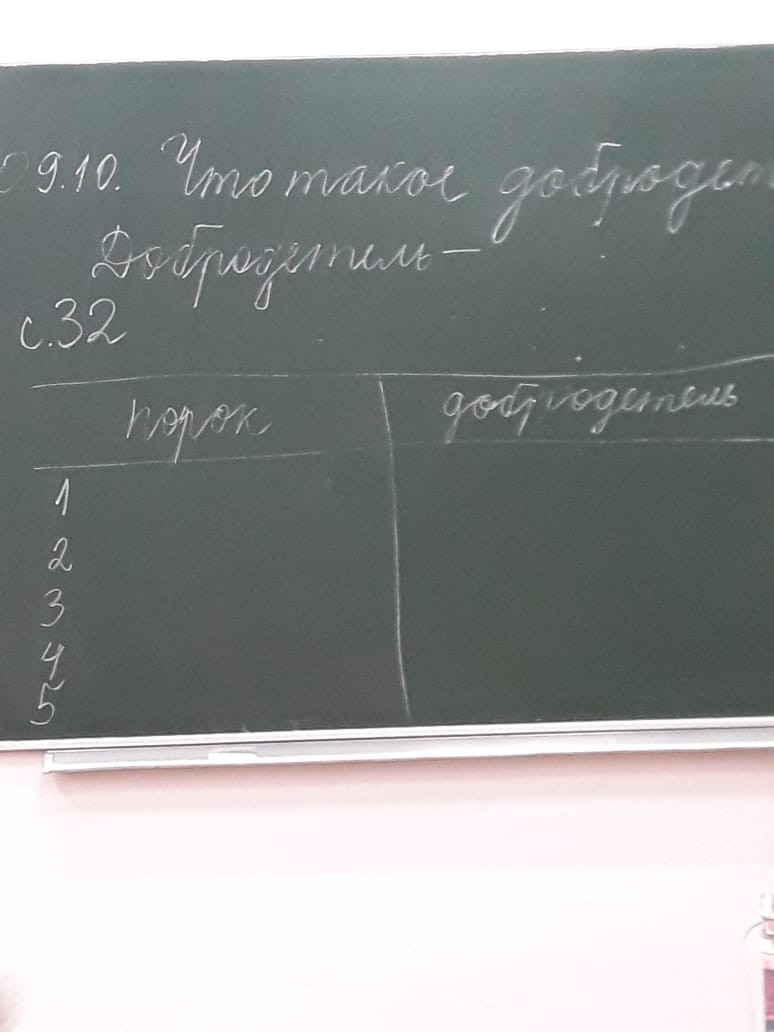 09.10. Что такое добродет
Добродетель –
с.32
порок добродетель
1
2
3
4
5